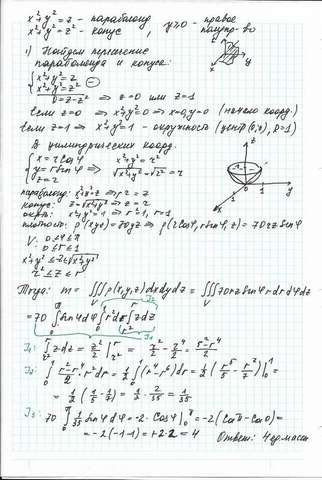 x²+y²=z - параболоид
x²+y²=z² - конус , y≥0 - правое полупр-во
1) Найдем пересечение
параболоида и конуса:
{x²+y²=z
{x²+y²=z² ⊖
0=z-z² ⇒ z=0 или z=1
Если z=0 ⇒ x²+y²=0 ⇒ x=0, y=0 (начало коорд.)
Если z=1 ⇒ x²+y²=1 - окружность (центр (0,0), R=1)
В цилиндрических коорд.
{x=r cosφ
{y=r sinφ ⇒ x²+y²=r²
{z=z √x²+y²=√r²=r
параболоид: x²+y²=z ⇒ r²=z
конус: z=√x²+y² ⇒ z=r
окр-ть: x²+y²=1 ⇒ r²=1, r=1
плотность: ρ(x,y,z)=70yz ⇒ ρ(r cosφ, r sinφ, z)=70rz sinφ
V: 0≤φ≤π
0≤r≤1
x²+y²≤z≤√x²+y²
r²≤z≤r
Тогда: m=∭ρ(x,y,z)dxdydz=∭70rz sinφ r dr dφ dz
V V
=70∫₀^π sinφdφ∫₀¹r²dr∫_{r²}^r zdz
J₁: ∫_{r²}^r zdz=z²/2|_{r²}^r=r²/2-r⁴/2=(r²-r⁴)/2
J₂: ∫₀¹(r²-r⁴)/2·r²dr=1/2∫₀¹(r⁴-r⁶)dr=1/2(r⁵/5-r⁷/7)|₀¹
=1/2(1/5-1/7)=1/2·2/35=1/35
J₃: 70∫₀^π 1/35 sinφdφ=-2·cosφ|₀^π=-2(cosπ-cos0)=
=-2(-1-1)=+2·2=4 Ответ: 4 ед.массы